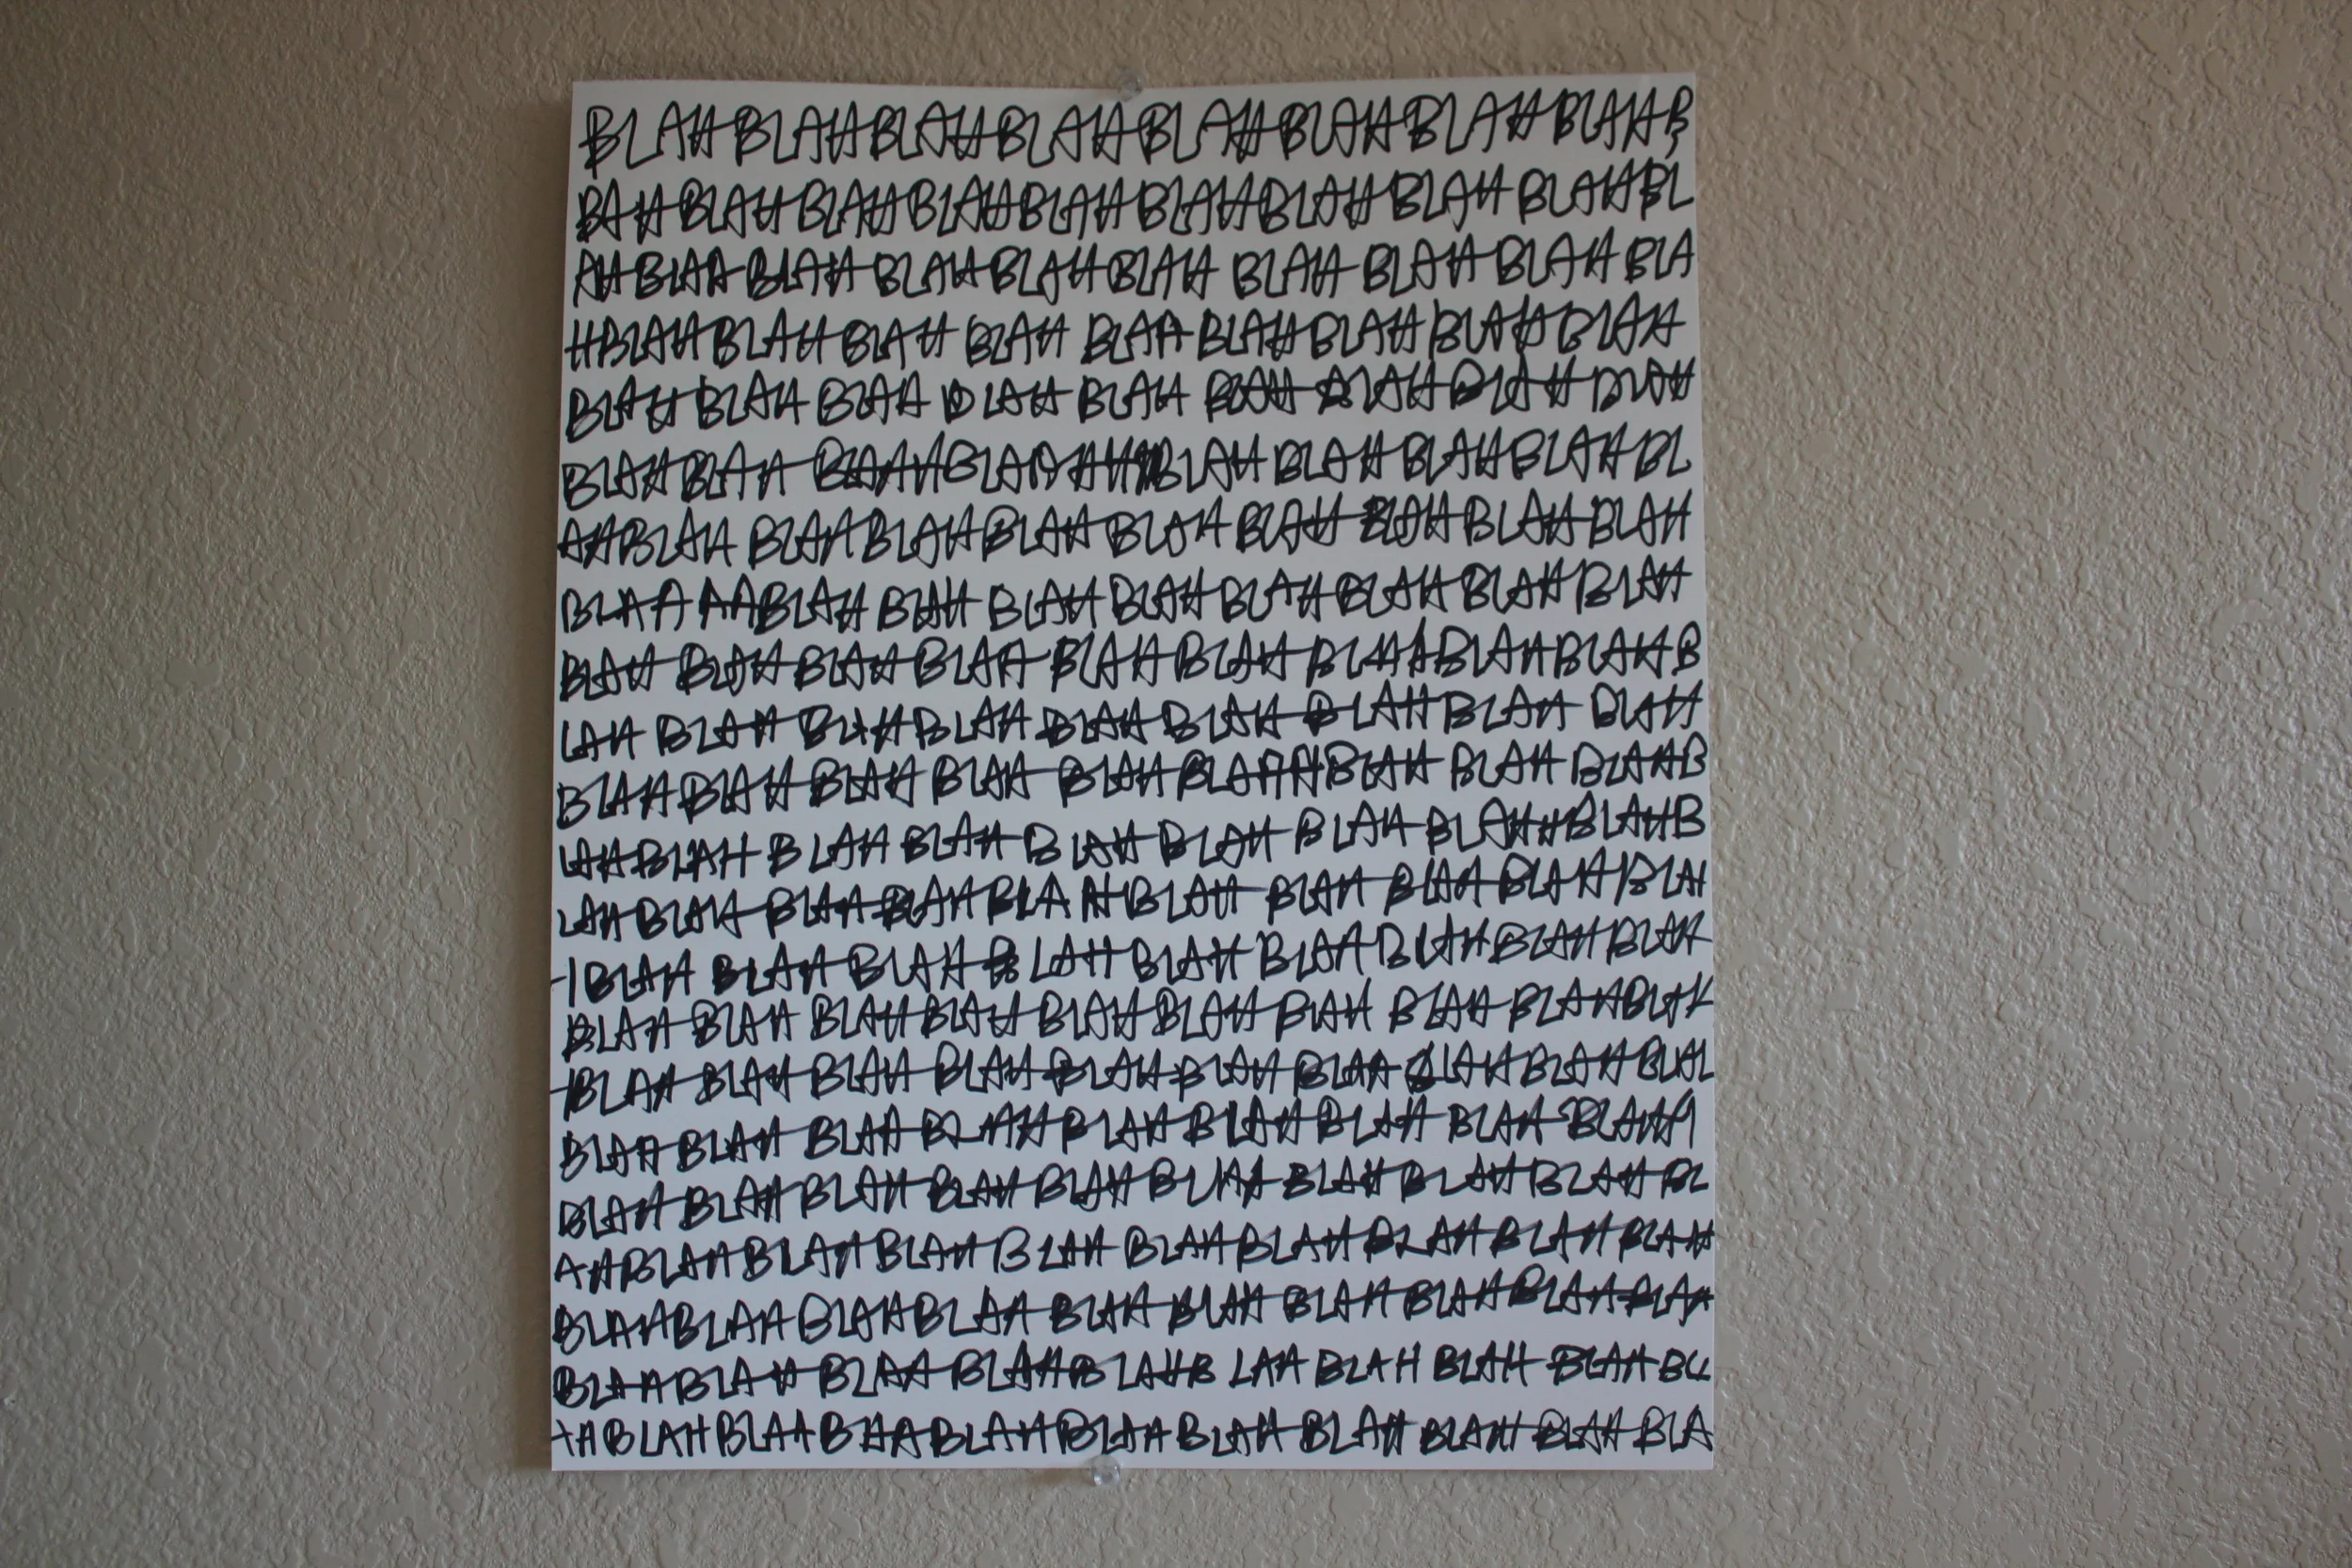 BLAHBLAHBLAHBLAHBLAHBLAHBLAHBLAHB
BAHBLAHBLAHBLAHBLAHBLAHBLAHBLAHBLAHBL
AHBLAHBLAHBLAHBLAHBLAH BLAH BLAHBLAH BLA
HBLAHBLAHBLAH BLAH BLAH BLAHBLAHBLAHBLAH
BLAH BLAH BLAH BLAH BLAH BLAH BLAH BLAH BLAH
BLAHBLAH BLAAAHBLAH BLAH BLAHBLAHBL
AHBLAH BLAHBLAHBLAHBLAHBLAH BLAHBLAHBLAH
BLAA AABLAH BLAH BLAH BLAHBLAHBLAH BLAHBLAH
BLAH BLAHBLAHBLAH BLAHBLAH BLAABLAHBLAHB
LAH BLAH BLAHBLAH BLAH BLAH BLAHBLAH BLAH
BLAHBLAHBLAH BLAH BLAHBLAHHBLAH BLAH BLAHB
LAHBLAH BLAH BLAH BLAH BLAH BLAH BLAHHBLAHB
LAHBLAH BLAHBLAHBLAHBLAH BLAH BLAHBLAHBLAH
HBLAH BLAH BLAH BLAH BLAH BLAHBLAHBLAHBLAH
BLAH BLAH BLAHBLAH BLAHBLAH BLAH BLAH BLAHBLAH
HBLAH BLAH BLAH BLAHBLAH BLAH BLAH BLAHBLAHBLAL
BLAH BLAH BLAH BLAH BLAH BLAHBLAH BLAH BLAHH
BLAH BLAHBLAH BLAH BLAH BLAH BLAHBLAHBLAH BL
AHBLAHBLAHBLAH BLAH BLAHBLAH BLAHBLAHBLAH
BLAHBLAHBLAHBLAH BLAH BLAH BLAH BLAHBLAHBLAH
BLAHBLAH BLAA BLAHBLAHB LAH BLAH BLAH BLAH BL
AHBLAHBLAABHABLAHBLAH BLAH BLAH BLAH BLAH BLA